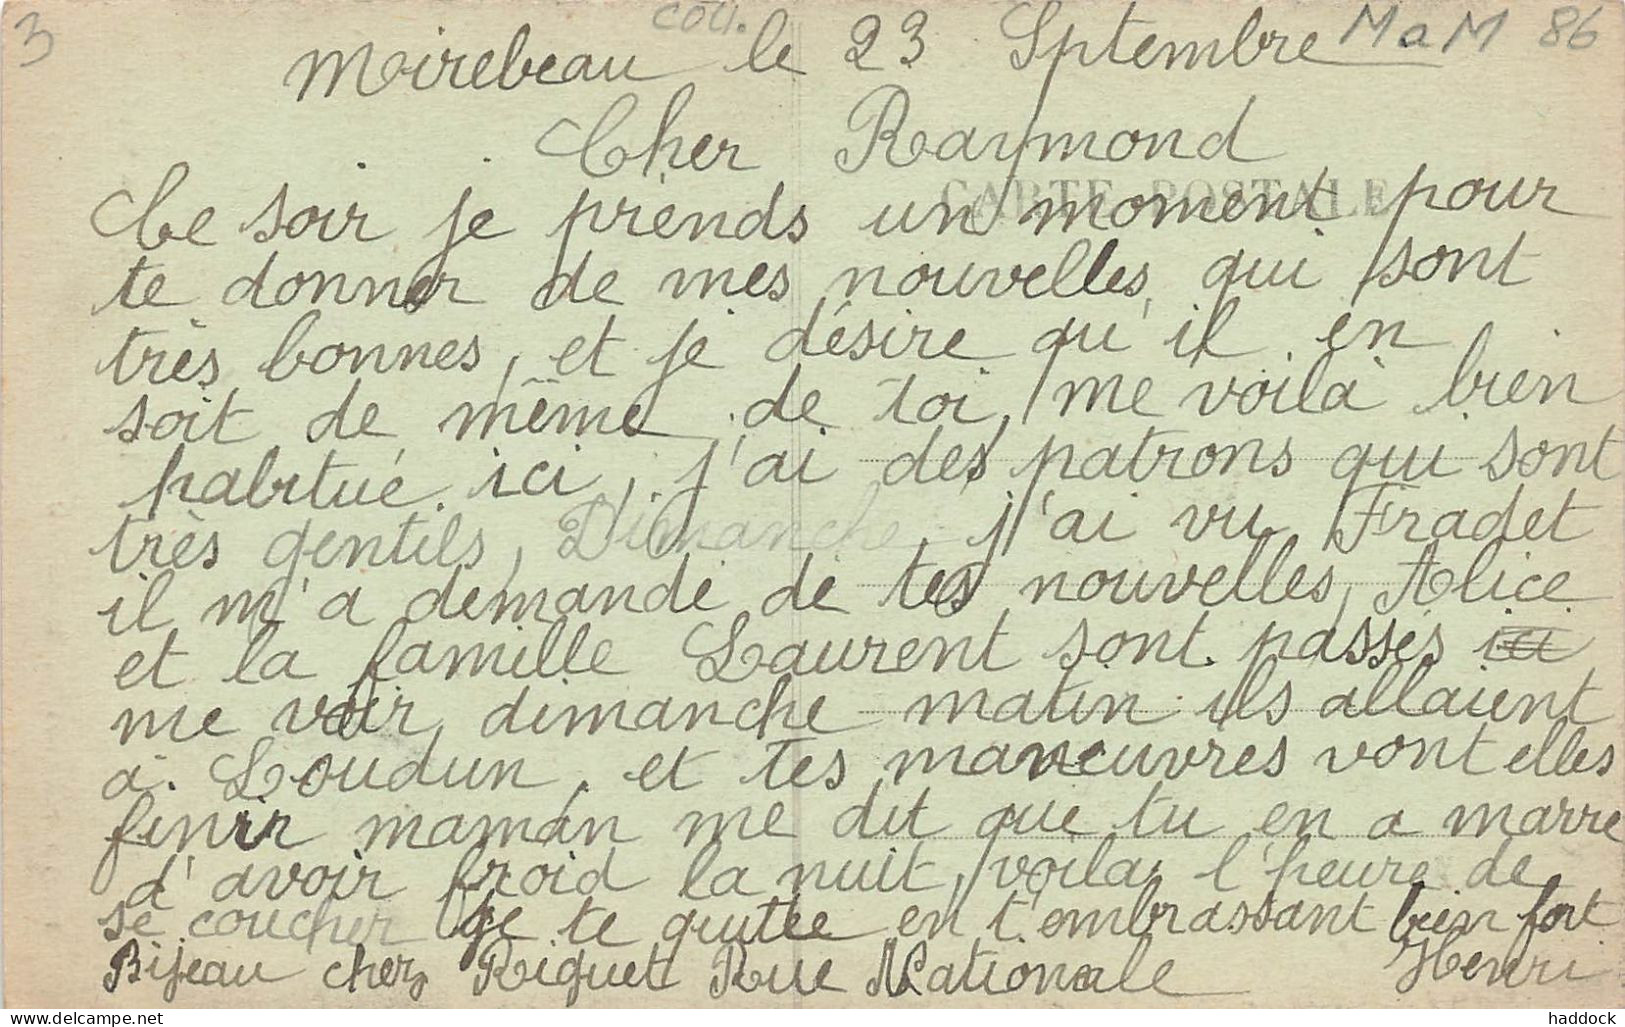 3 cou. MaM 86
Mirebeau le 23 Sptembre
Cher Raymond
CARTE POSTALE
Ce soir je prends un moment pour
te donner de mes nouvelles, qui sont
très bonnes, et je désire qu'il en
soit de même de toi, me voilà bien
habitué ici, j'ai des patrons qui sont
très gentils, Dimanche j'ai vu Fradet
il m'a demandé de tes nouvelles, Alice
et la famille Laurent sont passés ici
me voir, dimanche matin ils allaient
à Loudun, et tes manœuvres vont elles
finir maman me dit que tu en a marre
d'avoir froid la nuit, voila l'heure de
se coucher je te quitte en t'embrassant bien fort
Bijeau chez Riquet Rue Nationale Henri
haddock
https://www.delcampe.net